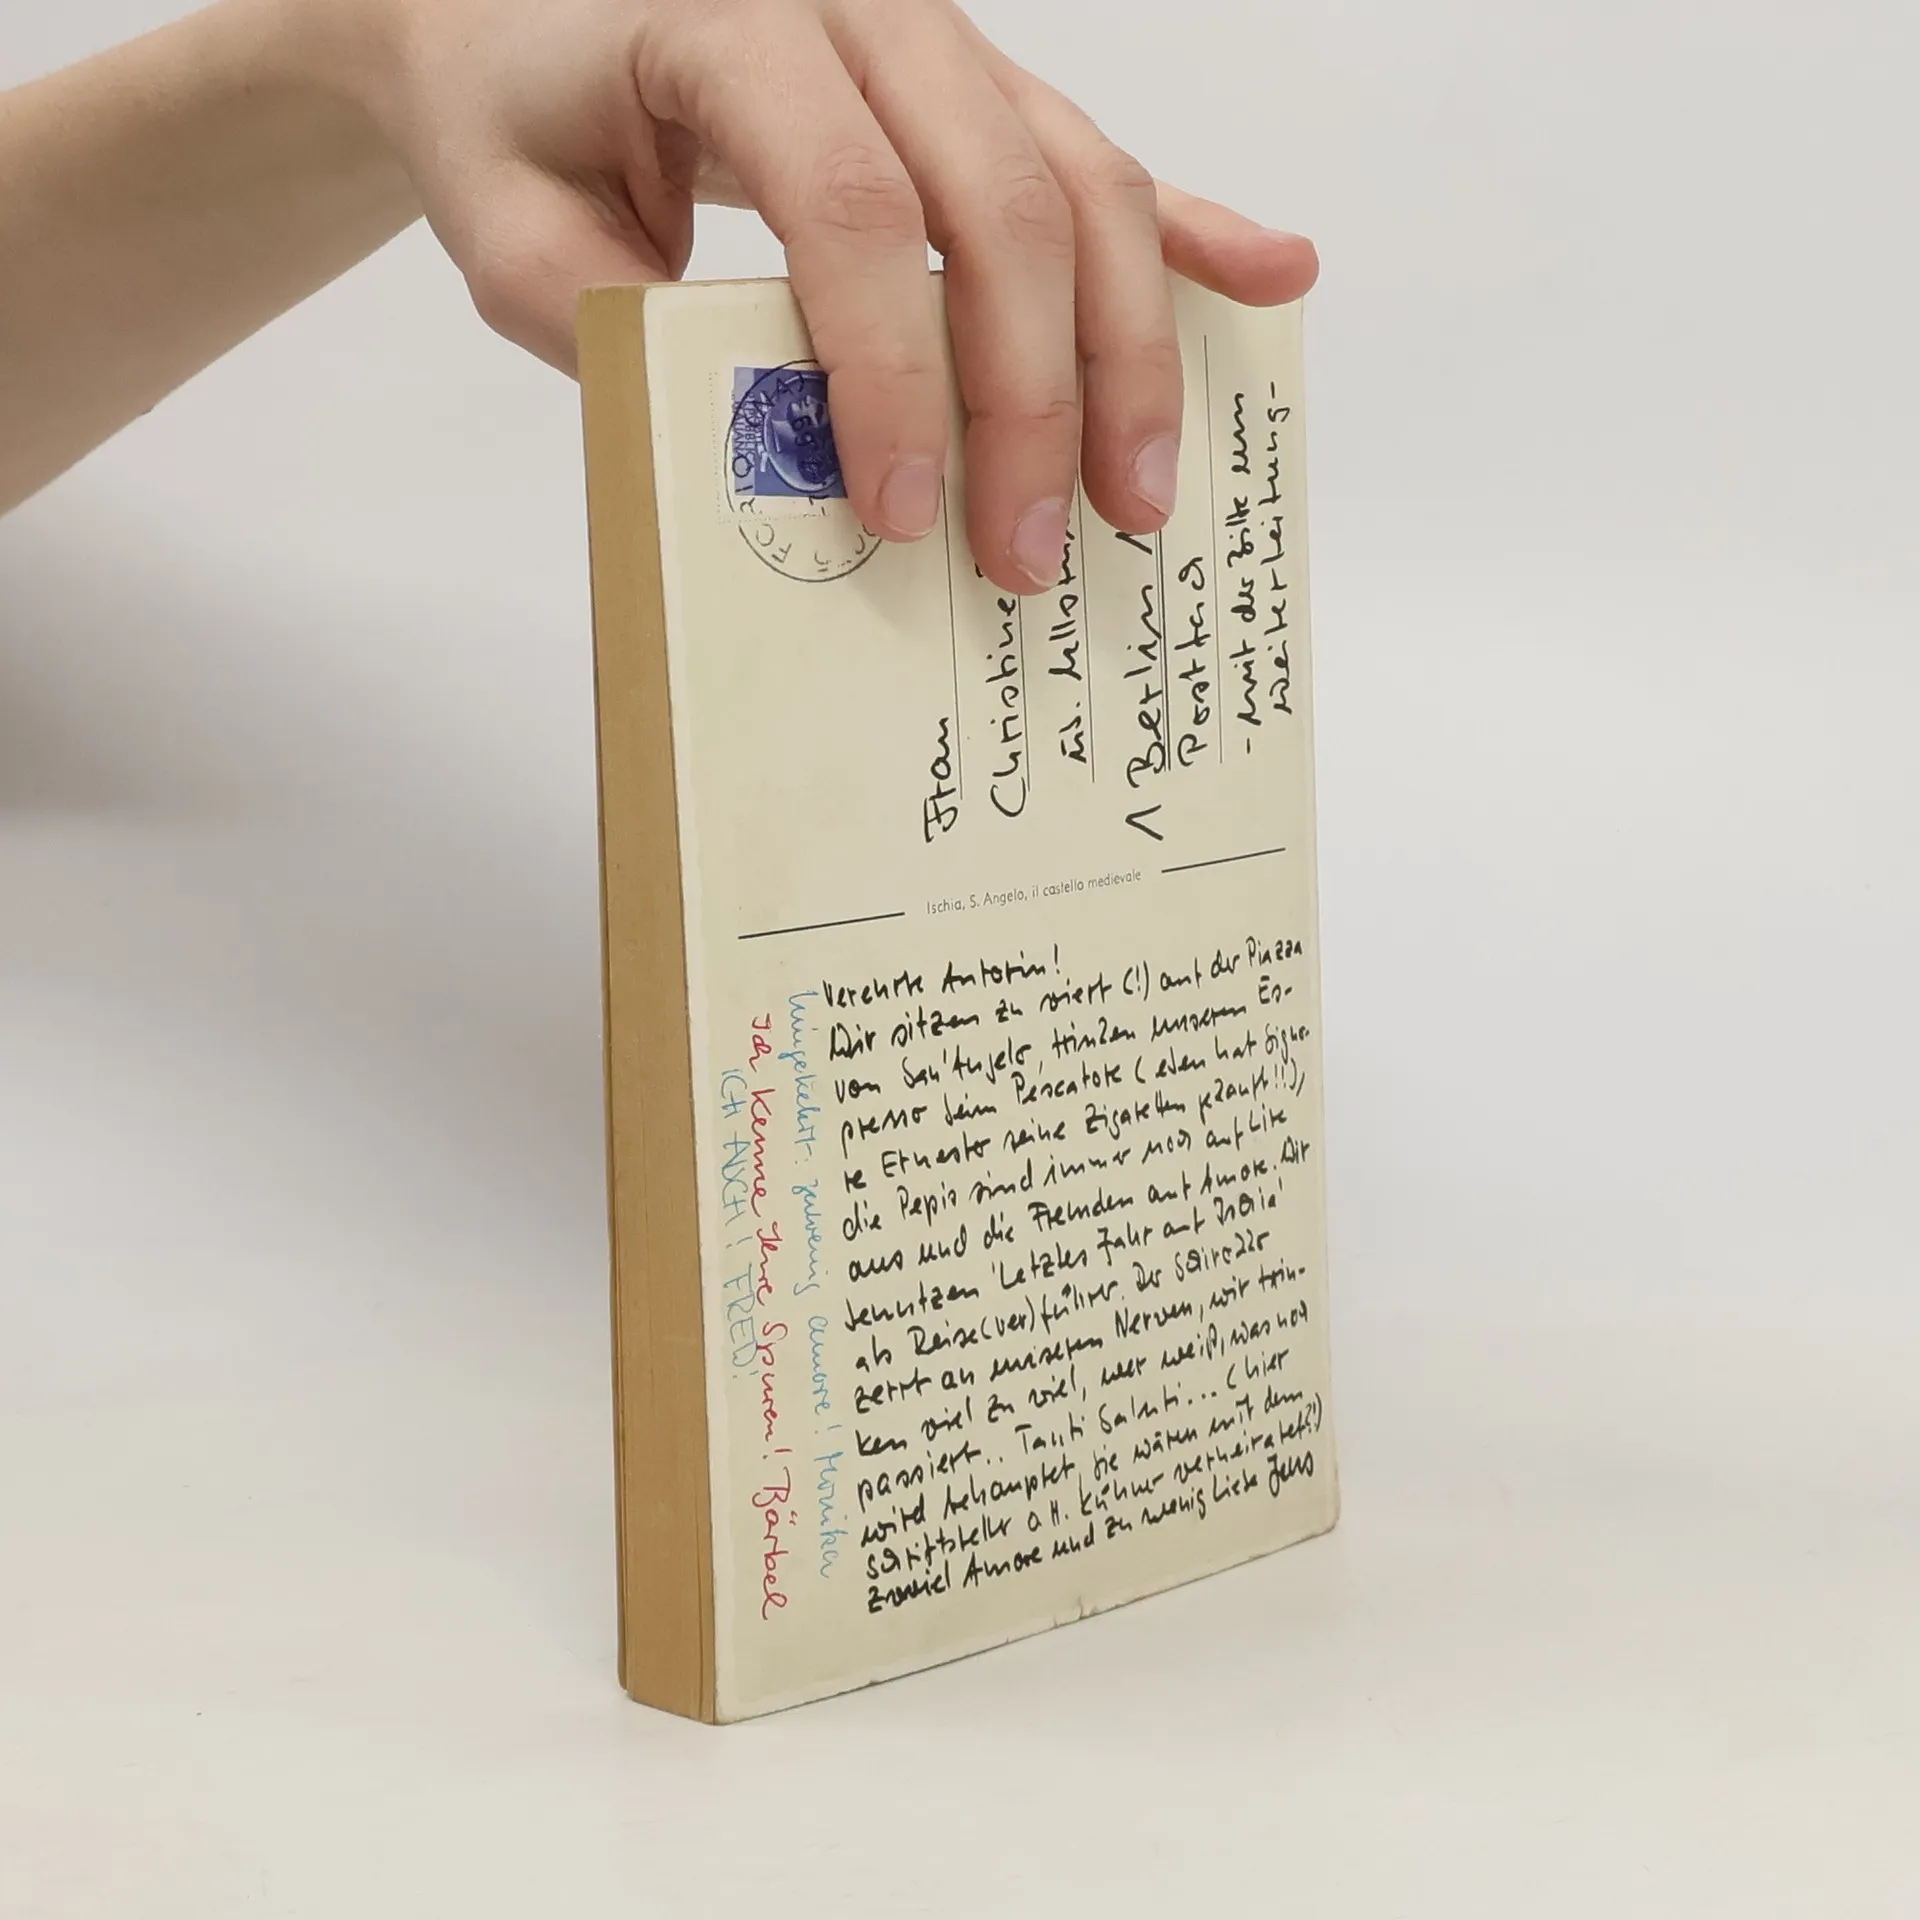 REPUBBLICA
ITALIANA
Frau
Christine
üb. Ullst
1 Berlin 1
Postfach
- mit der Bitte um
Weiterleitung -
Ischia, S. Angelo, il castello medievale
Verehrte Autorin!
Wir sitzen zu viert (!) auf der Piazza
von San'Angelo, trinken unseren Es-
presso beim Pescatore (eben hat Signo-
re Ernesto seine Zigaretten geklaut!!),
die Pepis sind immer noch auf Lire
aus und die Fremden auf Amore. Wir
benutzen 'Letztes Jahr auf Ischia'
als Reise(ver)führer. Der Scirocco
zerrt an unseren Nerven, wir trin-
ken viel zu viel, wer weiß, was noch
passiert.. Tanti Saluti... (hier
wird behauptet, Sie wären mit dem
Schriftsteller a H. Kühner verheiratet?!)
Zuviel Amore und zu wenig Liebe Jens
Umgekehrt: zuwenig amore! Monika
Ich kenne Ihre Spuren! Bärbel
ICH AUCH! FRED!